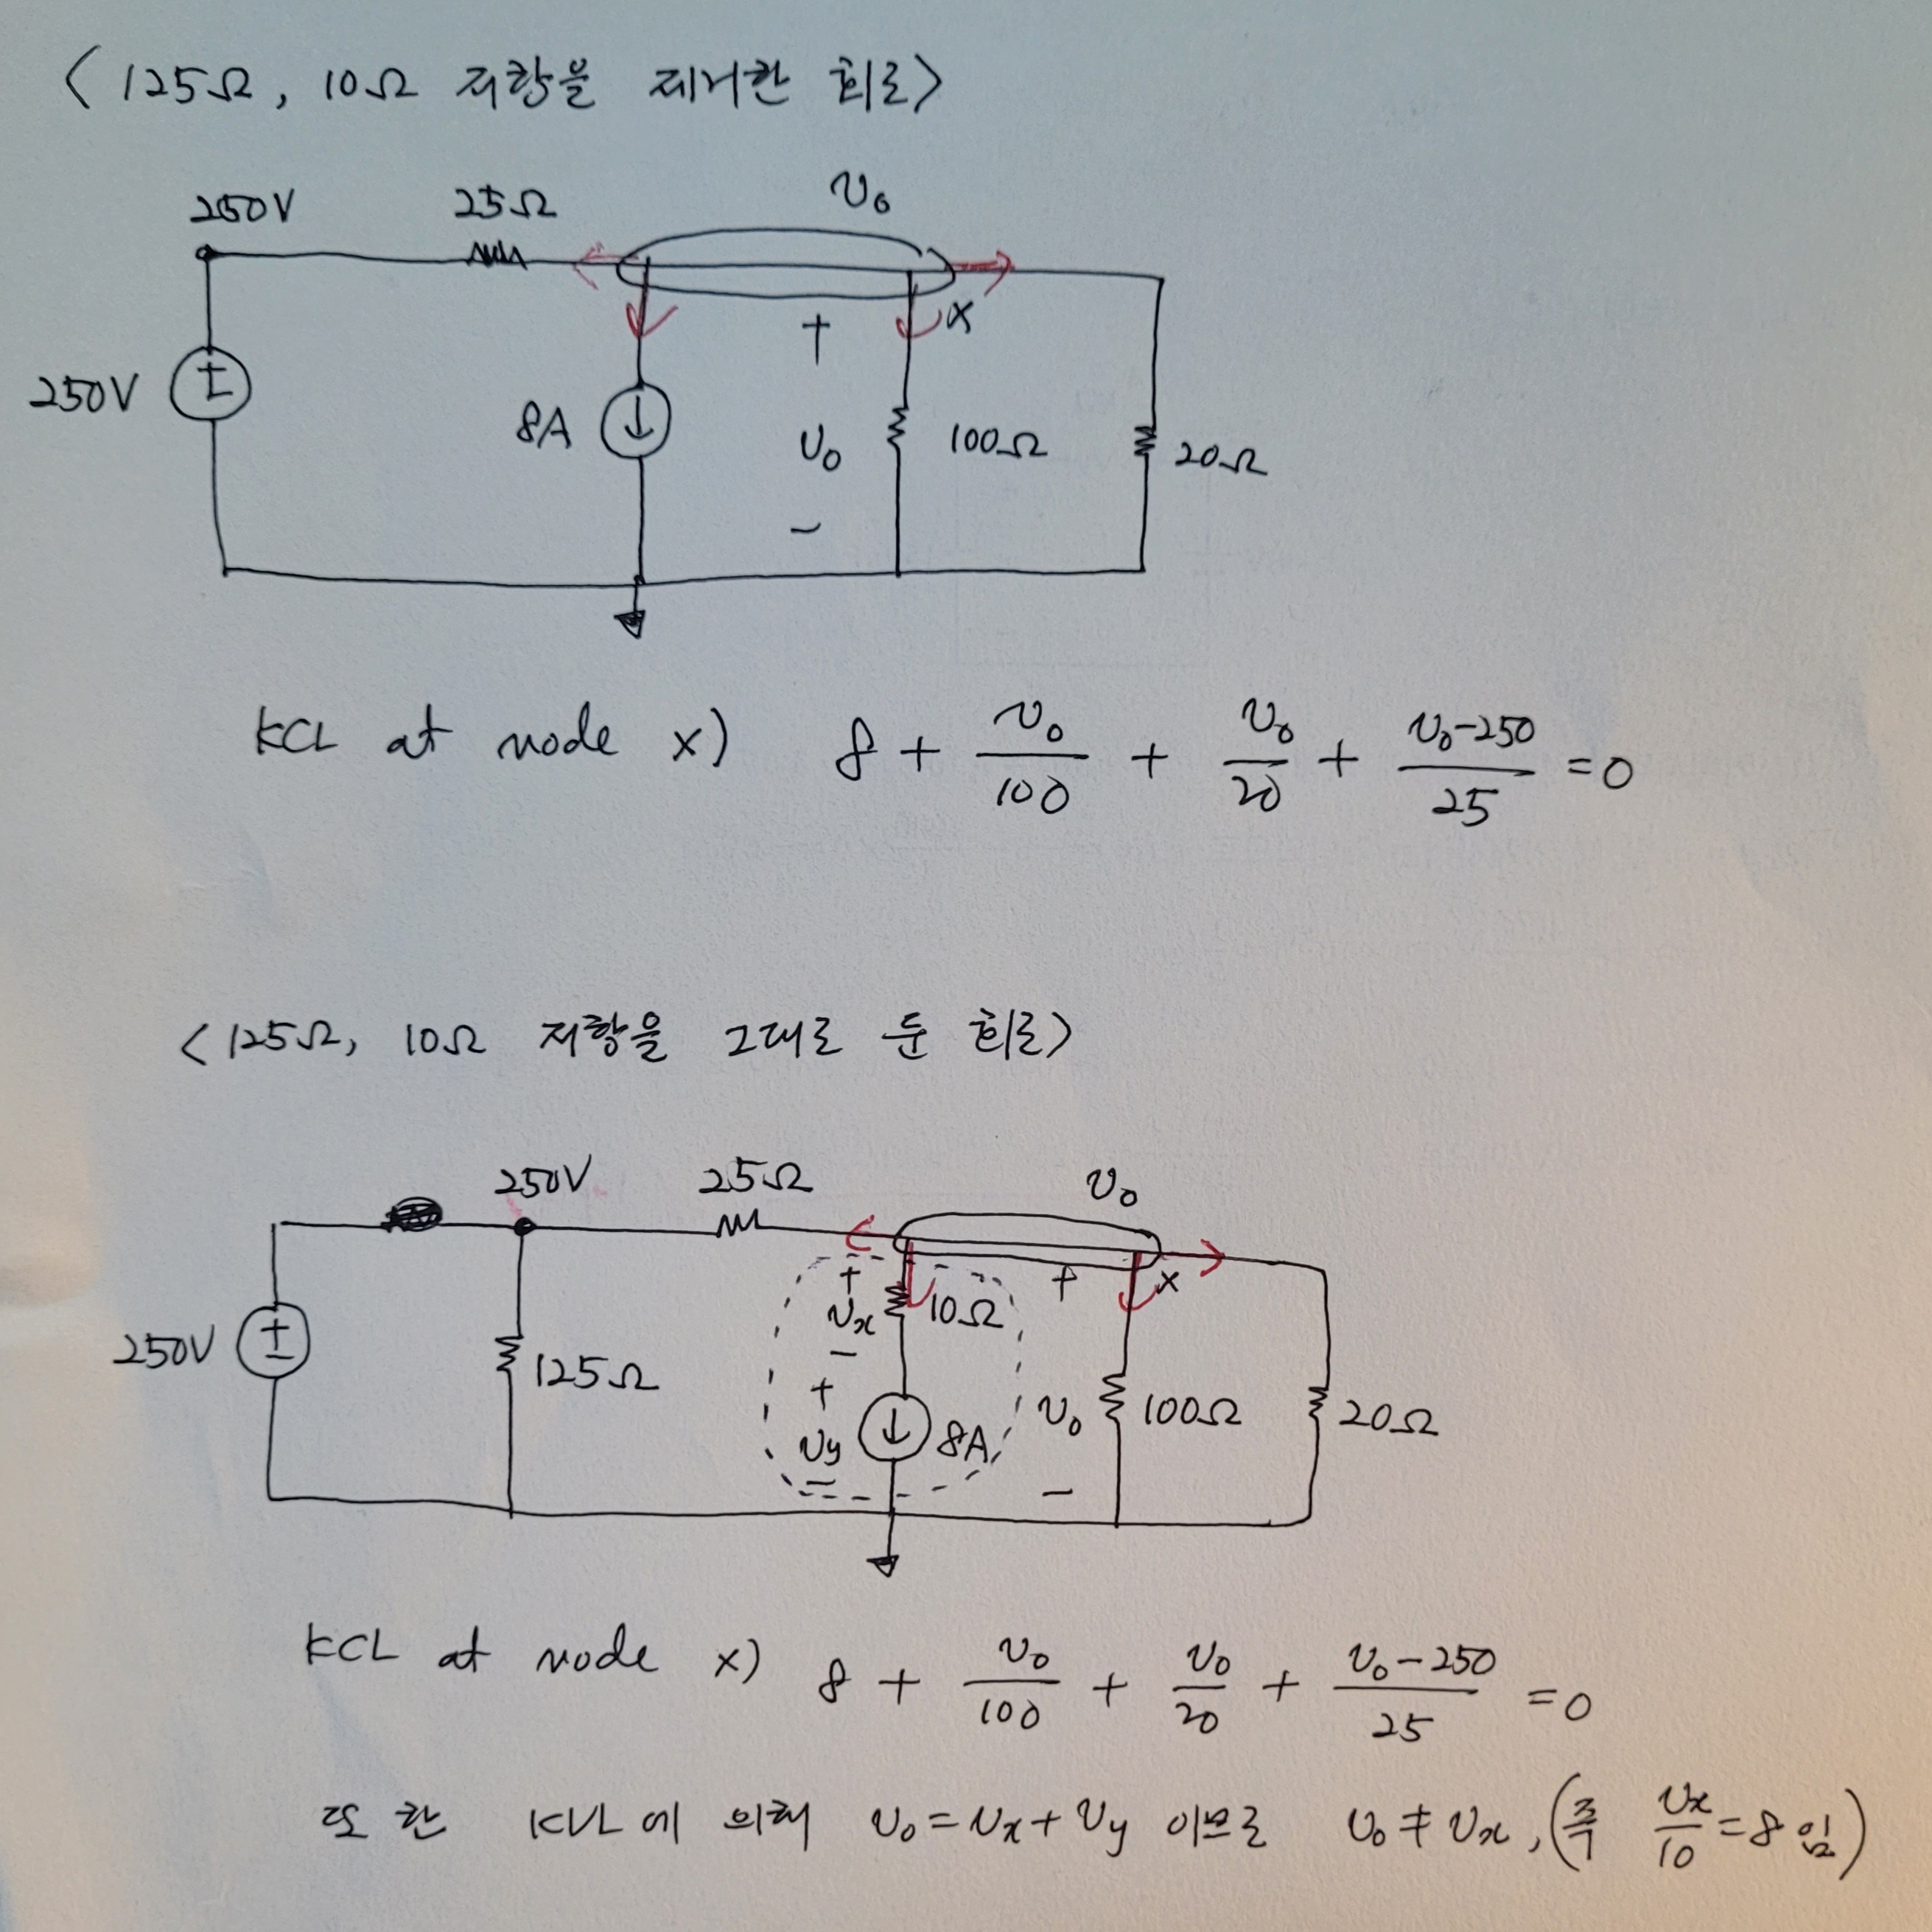 <125Ω, 10Ω 저항을 제거한 회로>
250V 25Ω v₀
250V 8A + v₀ − x 100Ω 20Ω
KCL at node x) 8 + v₀/100 + v₀/20 + (v₀-250)/25 = 0
<125Ω, 10Ω 저항을 그대로 둔 회로>
250V 25Ω v₀
250V 125Ω + vx − 10Ω + vy − 8A + v₀ − x 100Ω 20Ω
KCL at node x) 8 + v₀/100 + v₀/20 + (v₀-250)/25 = 0
또한 KVL에 의해 v₀ = vx + vy 이므로 v₀ ≠ vx, (즉 vx/10 = 8 임)